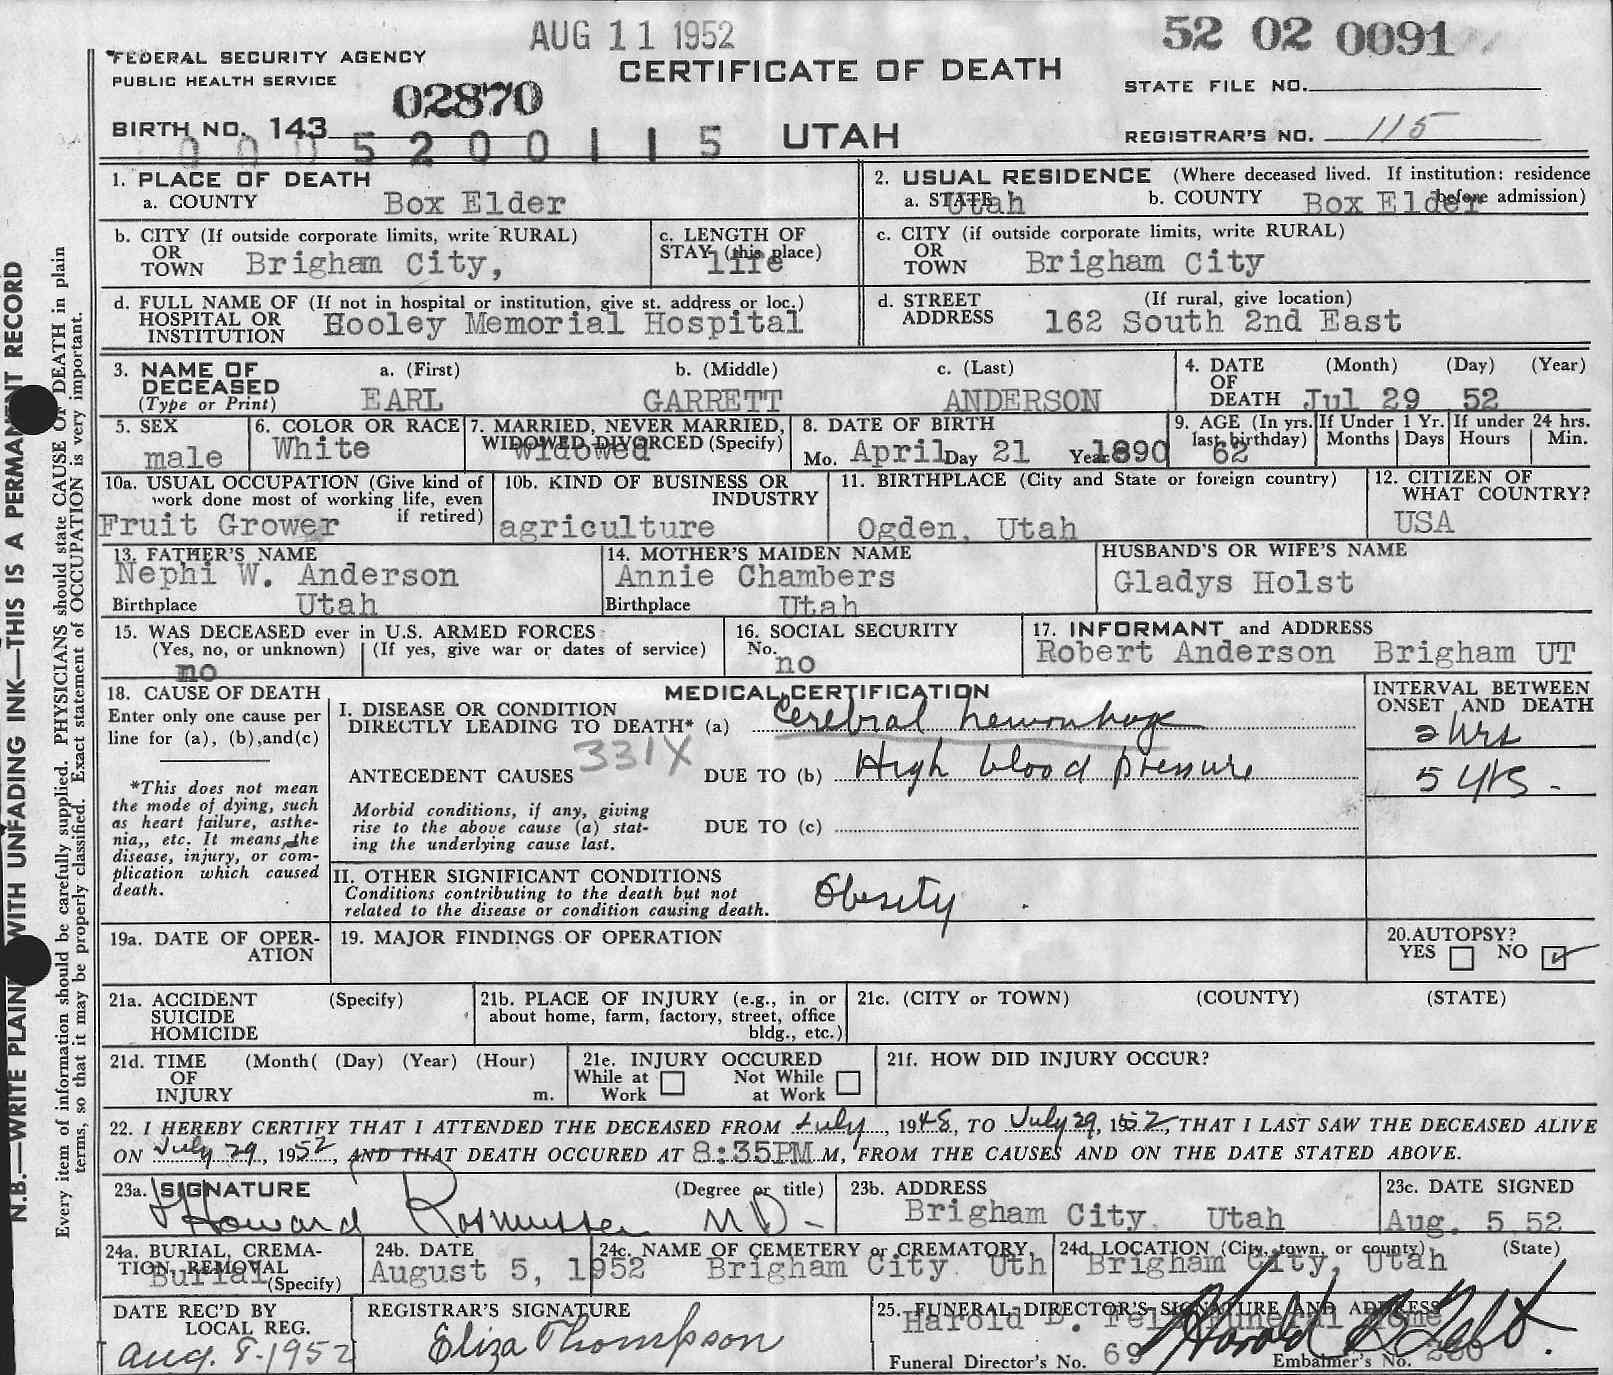 AUG 11 1952
52 02 0091
FEDERAL SECURITY AGENCY
PUBLIC HEALTH SERVICE
CERTIFICATE OF DEATH
STATE FILE NO.
02870
BIRTH NO. 143
0005200115
UTAH
REGISTRAR'S NO. 115
1. PLACE OF DEATH
a. COUNTY Box Elder
2. USUAL RESIDENCE (Where deceased lived. If institution: residence before admission)
a. STATE Utah b. COUNTY Box Elder
b. CITY (If outside corporate limits, write RURAL)
OR
TOWN Brigham City,
c. LENGTH OF
STAY (this place)
life
c. CITY (if outside corporate limits, write RURAL)
OR
TOWN Brigham City
d. FULL NAME OF (If not in hospital or institution, give st. address or loc.)
HOSPITAL OR
INSTITUTION Hooley Memorial Hospital
d. STREET (If rural, give location)
ADDRESS 162 South 2nd East
3. NAME OF
DECEASED
(Type or Print)
a. (First) b. (Middle) c. (Last)
EARL GARRETT ANDERSON
4. DATE (Month) (Day) (Year)
OF
DEATH Jul 29 52
5. SEX
male
6. COLOR OR RACE
White
7. MARRIED, NEVER MARRIED,
WIDOWED, DIVORCED (Specify)
widowed
8. DATE OF BIRTH
Mo. April Day 21 Year 1890
9. AGE (In yrs.
last birthday)
62
If Under 1 Yr.
Months Days
If under 24 hrs.
Hours Min.
10a. USUAL OCCUPATION (Give kind of
work done most of working life, even
if retired)
Fruit Grower
10b. KIND OF BUSINESS OR
INDUSTRY
agriculture
11. BIRTHPLACE (City and State or foreign country)
Ogden, Utah
12. CITIZEN OF
WHAT COUNTRY?
USA
13. FATHER'S NAME
Nephi W. Anderson
Birthplace Utah
14. MOTHER'S MAIDEN NAME
Annie Chambers
Birthplace Utah
HUSBAND'S OR WIFE'S NAME
Gladys Holst
15. WAS DECEASED ever in U.S. ARMED FORCES
(Yes, no, or unknown) (If yes, give war or dates of service)
no
16. SOCIAL SECURITY
No.
no
17. INFORMANT and ADDRESS
Robert Anderson Brigham UT
18. CAUSE OF DEATH
Enter only one cause per
line for (a), (b), and(c)
*This does not mean
the mode of dying, such
as heart failure, asthe-
nia,, etc. It means the
disease, injury, or com-
plication which caused
death.
MEDICAL CERTIFICATION
I. DISEASE OR CONDITION
DIRECTLY LEADING TO DEATH* (a) Cerebral hemorrhage
331X
ANTECEDENT CAUSES DUE TO (b) High blood pressure
Morbid conditions, if any, giving
rise to the above cause (a) stat-
ing the underlying cause last.
DUE TO (c)
INTERVAL BETWEEN
ONSET AND DEATH
2 hrs
5 yrs.
II. OTHER SIGNIFICANT CONDITIONS
Conditions contributing to the death but not
related to the disease or condition causing death.
Obesity
19a. DATE OF OPER-
ATION
19. MAJOR FINDINGS OF OPERATION
20. AUTOPSY?
YES NO
21a. ACCIDENT (Specify)
SUICIDE
HOMICIDE
21b. PLACE OF INJURY (e.g., in or
about home, farm, factory, street, office
bldg., etc.)
21c. (CITY or TOWN) (COUNTY) (STATE)
21d. TIME (Month( (Day) (Year) (Hour)
OF
INJURY m.
21e. INJURY OCCURED
While at Work Not While at Work
21f. HOW DID INJURY OCCUR?
22. I HEREBY CERTIFY THAT I ATTENDED THE DECEASED FROM July, 1948, TO July 29, 1952, THAT I LAST SAW THE DECEASED ALIVE
ON July 29, 1952, AND THAT DEATH OCCURED AT 8:35PM M, FROM THE CAUSES AND ON THE DATE STATED ABOVE.
23a. SIGNATURE (Degree or title)
Howard Rasmussen MD
23b. ADDRESS
Brigham City, Utah
23c. DATE SIGNED
Aug. 5 52
24a. BURIAL, CREMA-
TION, REMOVAL
(Specify)
Burial
24b. DATE
August 5, 1952
24c. NAME OF CEMETERY or CREMATORY,
Brigham City Uth
24d. LOCATION (City, town, or county) (State)
Brigham City, Utah
DATE REC'D BY
LOCAL REG.
Aug. 8-1952
REGISTRAR'S SIGNATURE
Eliza Thompson
25. FUNERAL DIRECTOR'S SIGNATURE AND ADDRESS
Harold B. Felt Funeral Home
Harold B Felt
Funeral Director's No. 69 Embalmer's No.
N.B.—WRITE PLAINLY WITH UNFADING INK—THIS IS A PERMANENT RECORD
Every item of information should be carefully supplied. PHYSICIANS should state CAUSE OF DEATH in plain
terms, so that it may be properly classified. Exact statement of OCCUPATION is very important.